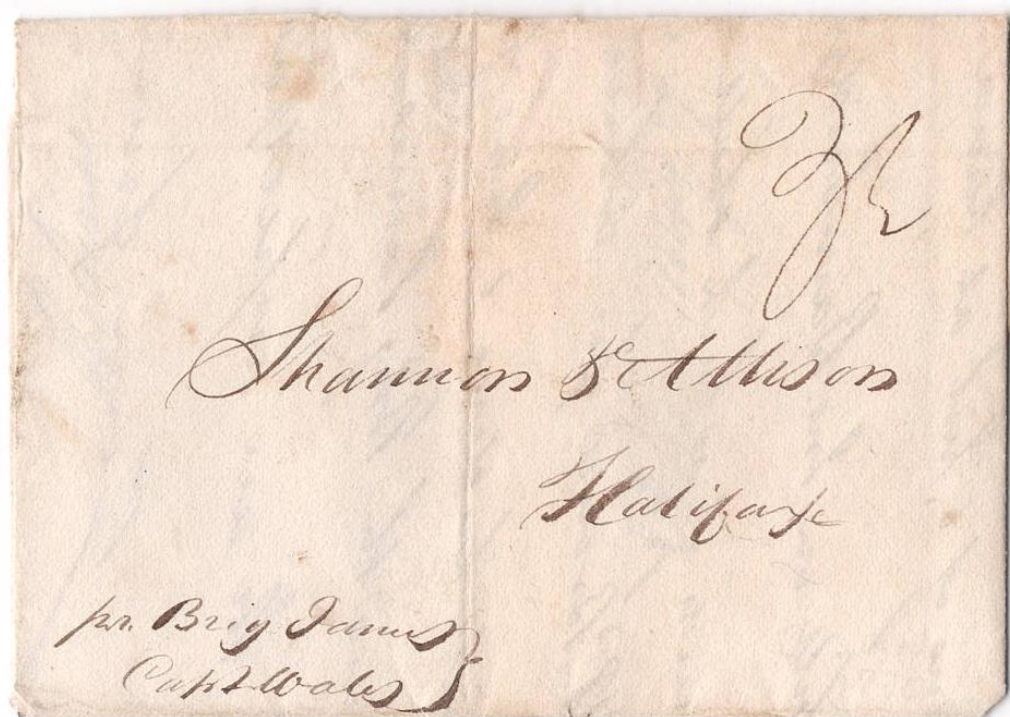 Shannon & Allison
Halifax
pr. Brig James
Capt Wales